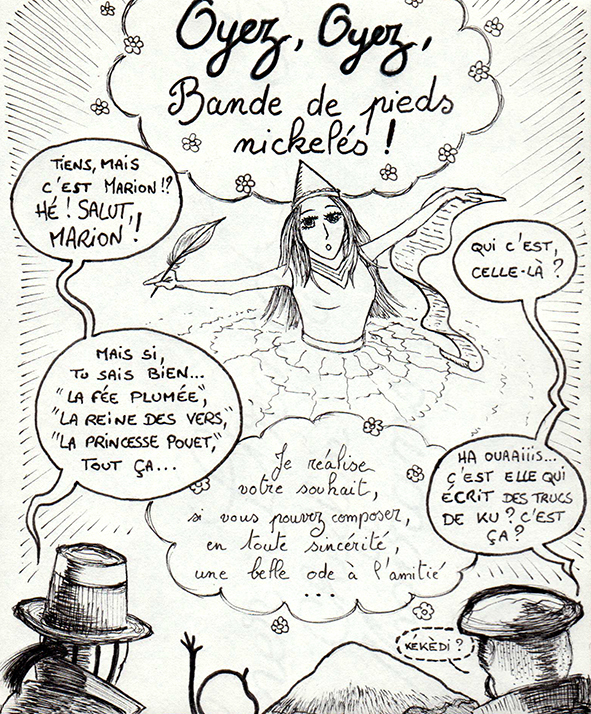 Oyez, Oyez,
Bande de pieds
nickelés !
TIENS, MAIS
C'EST MARION !?
HÉ ! SALUT,
MARION !
QUI C'EST,
CELLE-LÀ ?
MAIS SI,
TU SAIS BIEN...
"LA FÉE PLUMÉE",
"LA REINE DES VERS",
"LA PRINCESSE POUET",
TOUT ÇA...
HA OUAAIIIS...
C'EST ELLE QUI
ÉCRIT DES TRUCS
DE KU ? C'EST
ÇA ?
Je réalise
votre souhait,
si vous pouvez composer,
en toute sincérité,
une belle ode à l'amitié
...
KÉKÈDI ?